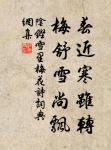 春近寒雖轉
梅舒雪尚飄
陰鏗雪里梅花詩詞典
網集